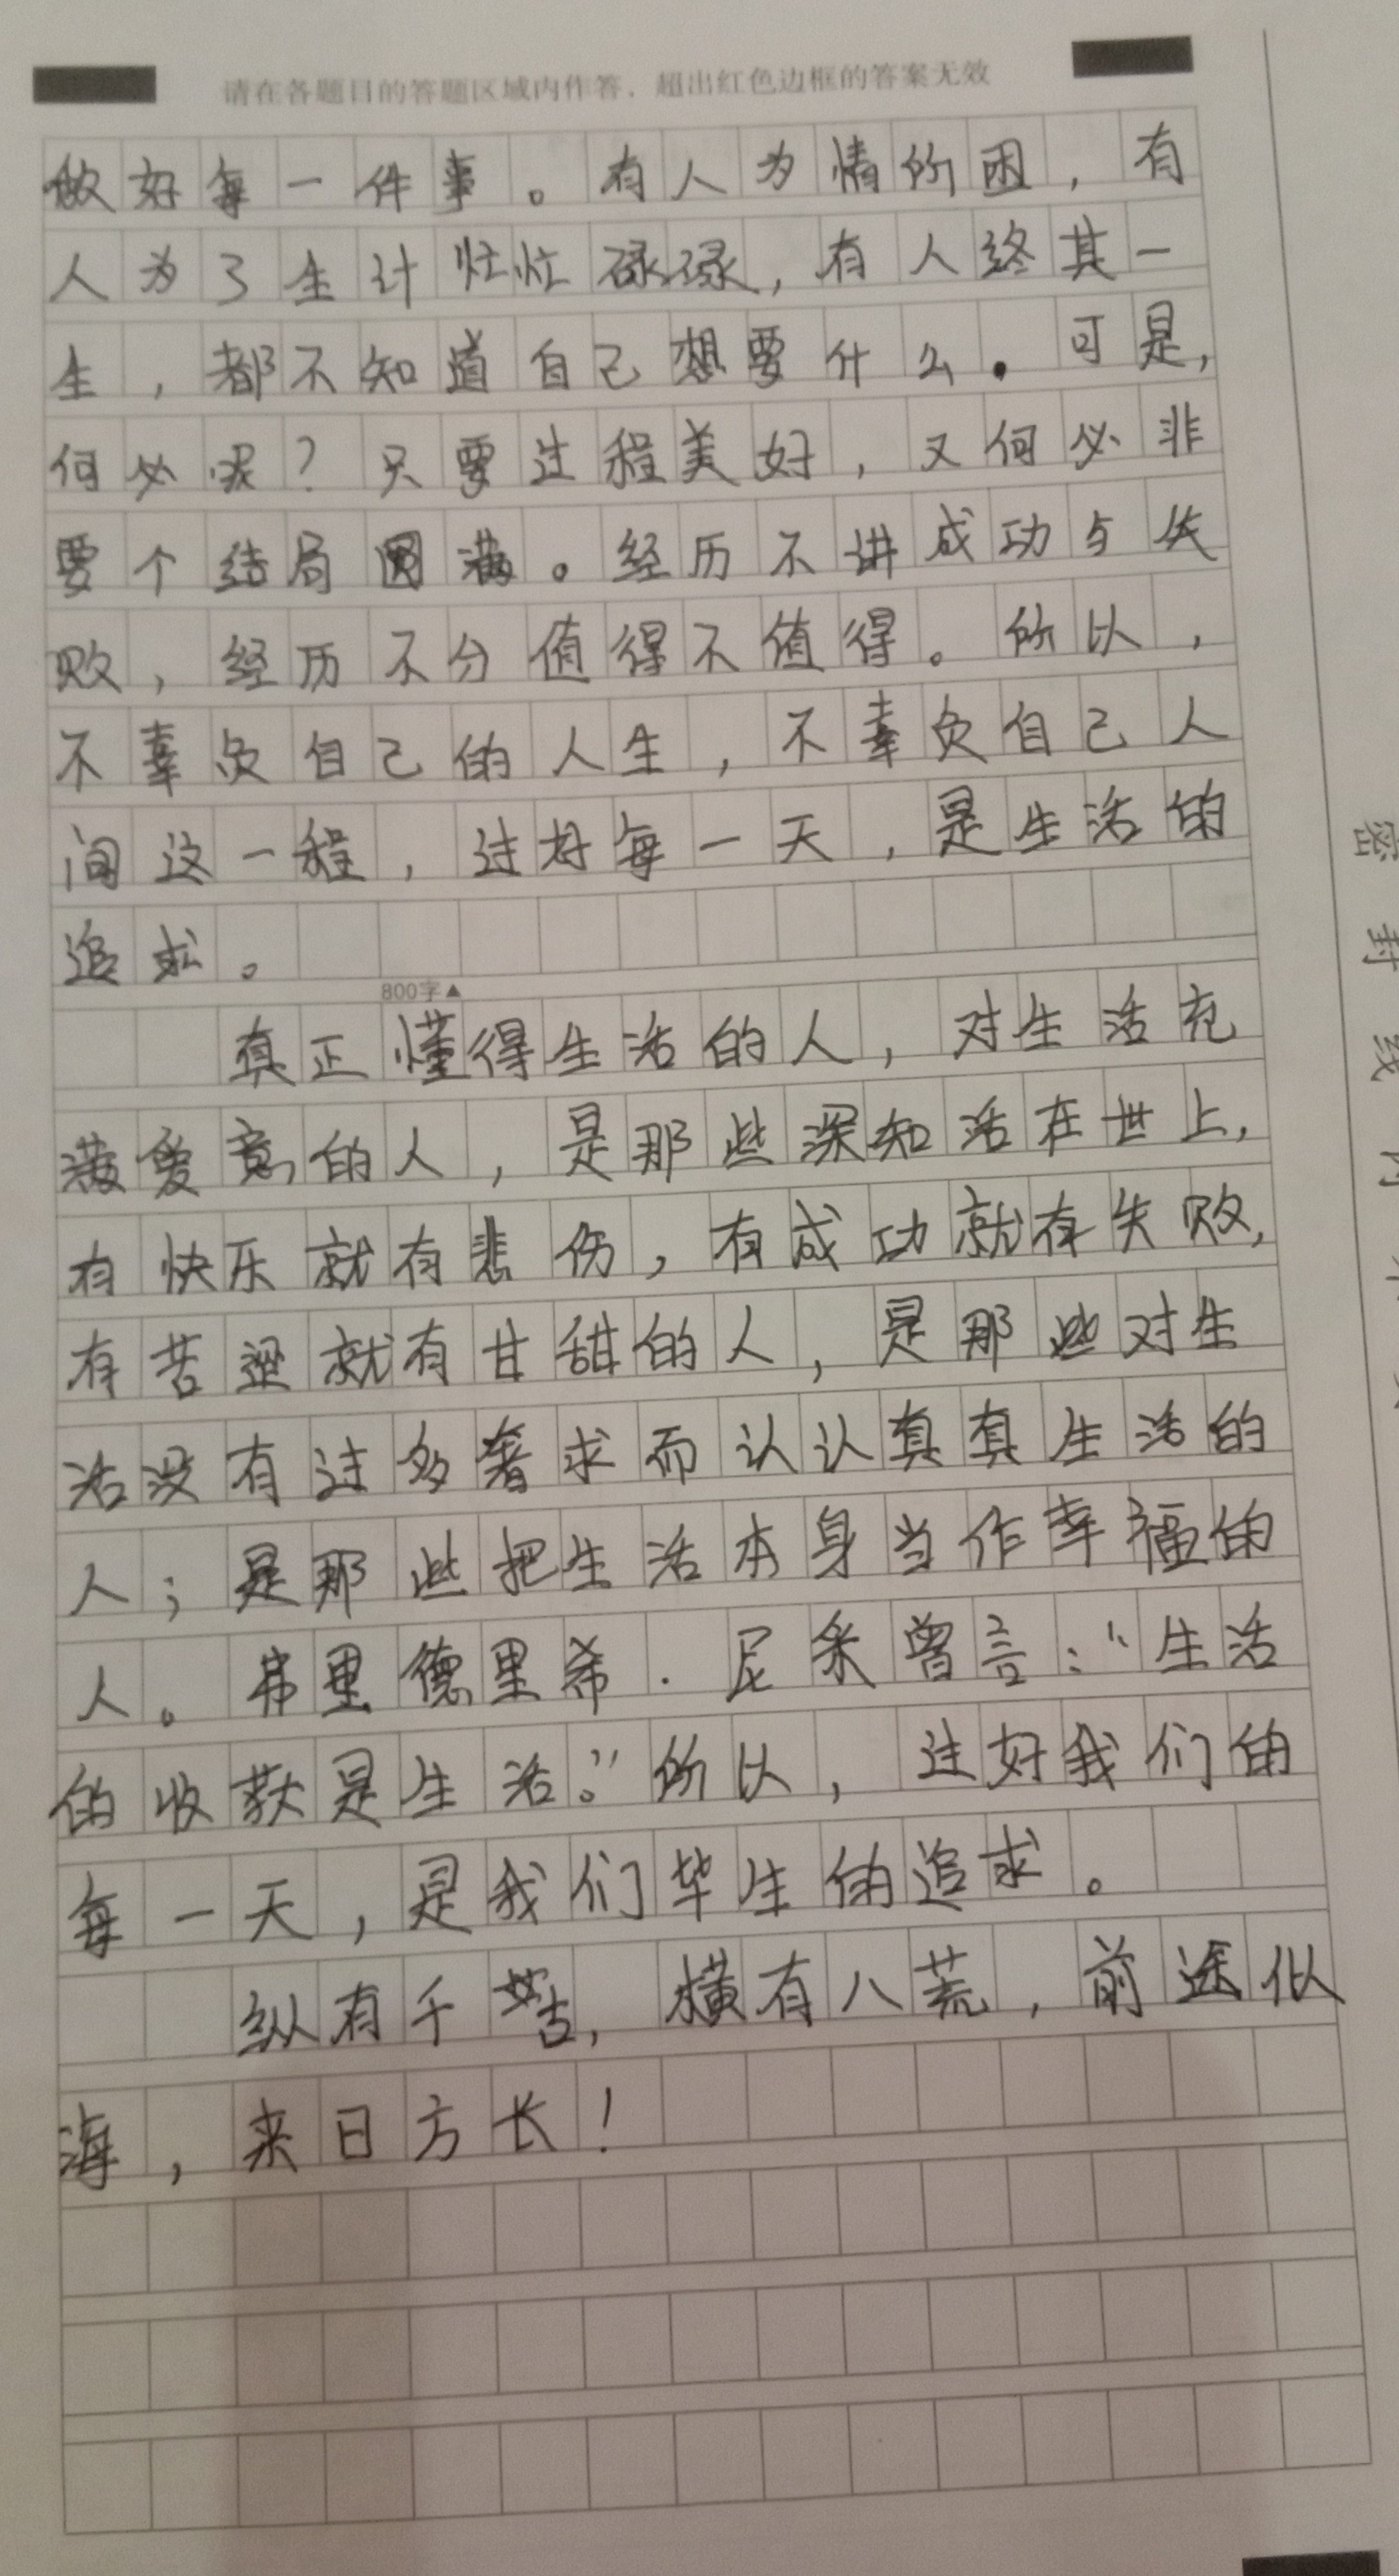 请在各题目的答题区域内作答，超出红色边框的答案无效
做好每一件事。有人为情所困，有
人为了生计忙忙碌碌，有人终其一
生，都不知道自己想要什么。可是，
何必呢？只要过程美好，又何必非
要个结局圆满。经历不讲成功与失
败，经历不分值得不值得。所以，
不辜负自己的人生，不辜负自己人
间这一程，过好每一天，是生活的
追求。
800字▲
真正懂得生活的人，对生活充
满爱意的人，是那些深知活在世上，
有快乐就有悲伤，有成功就有失败，
有苦涩就有甘甜的人，是那些对生
活没有过多奢求而认认真真生活的
人；是那些把生活本身当作幸福的
人。弗里德里希·尼采曾言：“生活
的收获是生活。”所以，过好我们的
每一天，是我们毕生的追求。
纵有千苦，横有八荒，前途似
海，来日方长！
密封线内